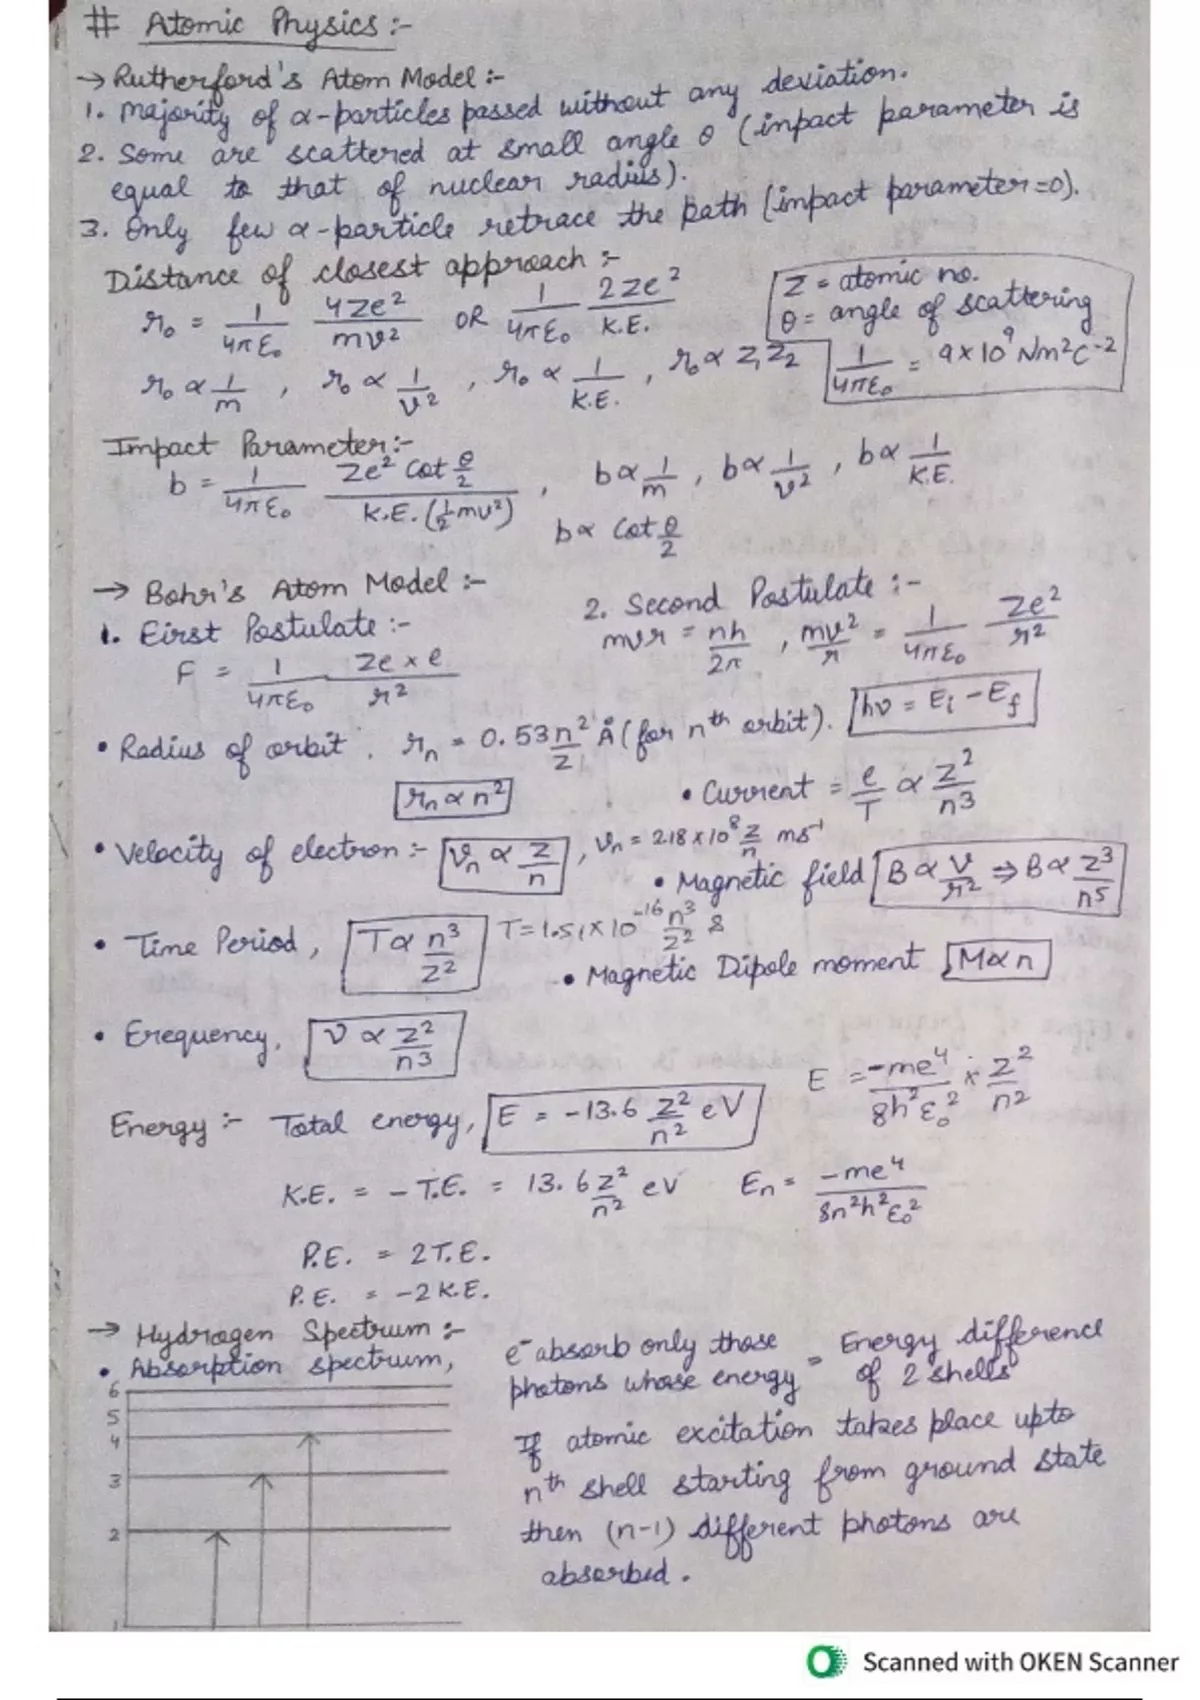 # Atomic Physics :-
→ Rutherford's Atom Model :-
1. Majority of α-particles passed without any deviation.
2. Some are scattered at small angle θ (impact parameter is
equal to that of nuclear radius).
3. Only few α-particle retrace the path (impact parameter=0).
Distance of closest approach :-
r₀ = 1/4πε₀ 4Ze²/mv² OR 1/4πε₀ 2Ze²/K.E.
Z = atomic no.
θ = angle of scattering
1/4πε₀ = 9×10⁹ Nm²C⁻²
r₀ ∝ 1/m , r₀ ∝ 1/v² , r₀ ∝ 1/K.E. , r₀ ∝ Z₁Z₂
Impact Parameter :-
b = 1/4πε₀ Ze² Cot θ/2 / K.E. (½mv²) , b ∝ 1/m , b ∝ 1/v² , b ∝ 1/K.E.
b ∝ Cot θ/2
→ Bohr's Atom Model :-
1. First Postulate :-
F = 1/4πε₀ Ze × e/r²
2. Second Postulate :-
mvr = nh/2π , mv²/r = 1/4πε₀ Ze²/r²
• Radius of orbit . rₙ = 0.53 n²/Z Å (for nth orbit). hν = Eᵢ - E_f
rₙ ∝ n²
• Current = e/T ∝ Z²/n³
• Velocity of electron :- vₙ ∝ Z/n , vₙ = 2.18 × 10⁸ Z/n ms⁻¹
• Magnetic field B ∝ v/r² ⇒ B ∝ Z³/n⁵
• Time Period, T ∝ n³/Z² T = 1.51 × 10⁻¹⁶ n³/Z² s
• Magnetic Dipole moment M ∝ n
• Frequency, ν ∝ Z²/n³
E = -me⁴/8h²ε₀² × Z²/n²
Energy :- Total energy, E = -13.6 Z²/n² eV
K.E. = - T.E. = 13.6 Z²/n² eV Eₙ = -me⁴/8n²h²ε₀²
P.E. = 2T.E.
P.E. = -2K.E.
→ Hydrogen Spectrum :-
• Absorption spectrum,
6
5
4
3
2
1
e⁻ absorb only those photons whose energy = Energy difference of 2 shells
If atomic excitation takes place upto
nth shell starting from ground state
then (n-1) different photons are
absorbed.
Scanned with OKEN Scanner